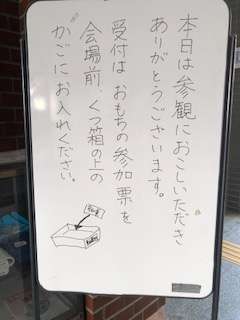 本日は参観におこしいただき
ありがとうございます。
受付は おもちの参加票を
会場前、くつ箱の上の
かごにお入れください。